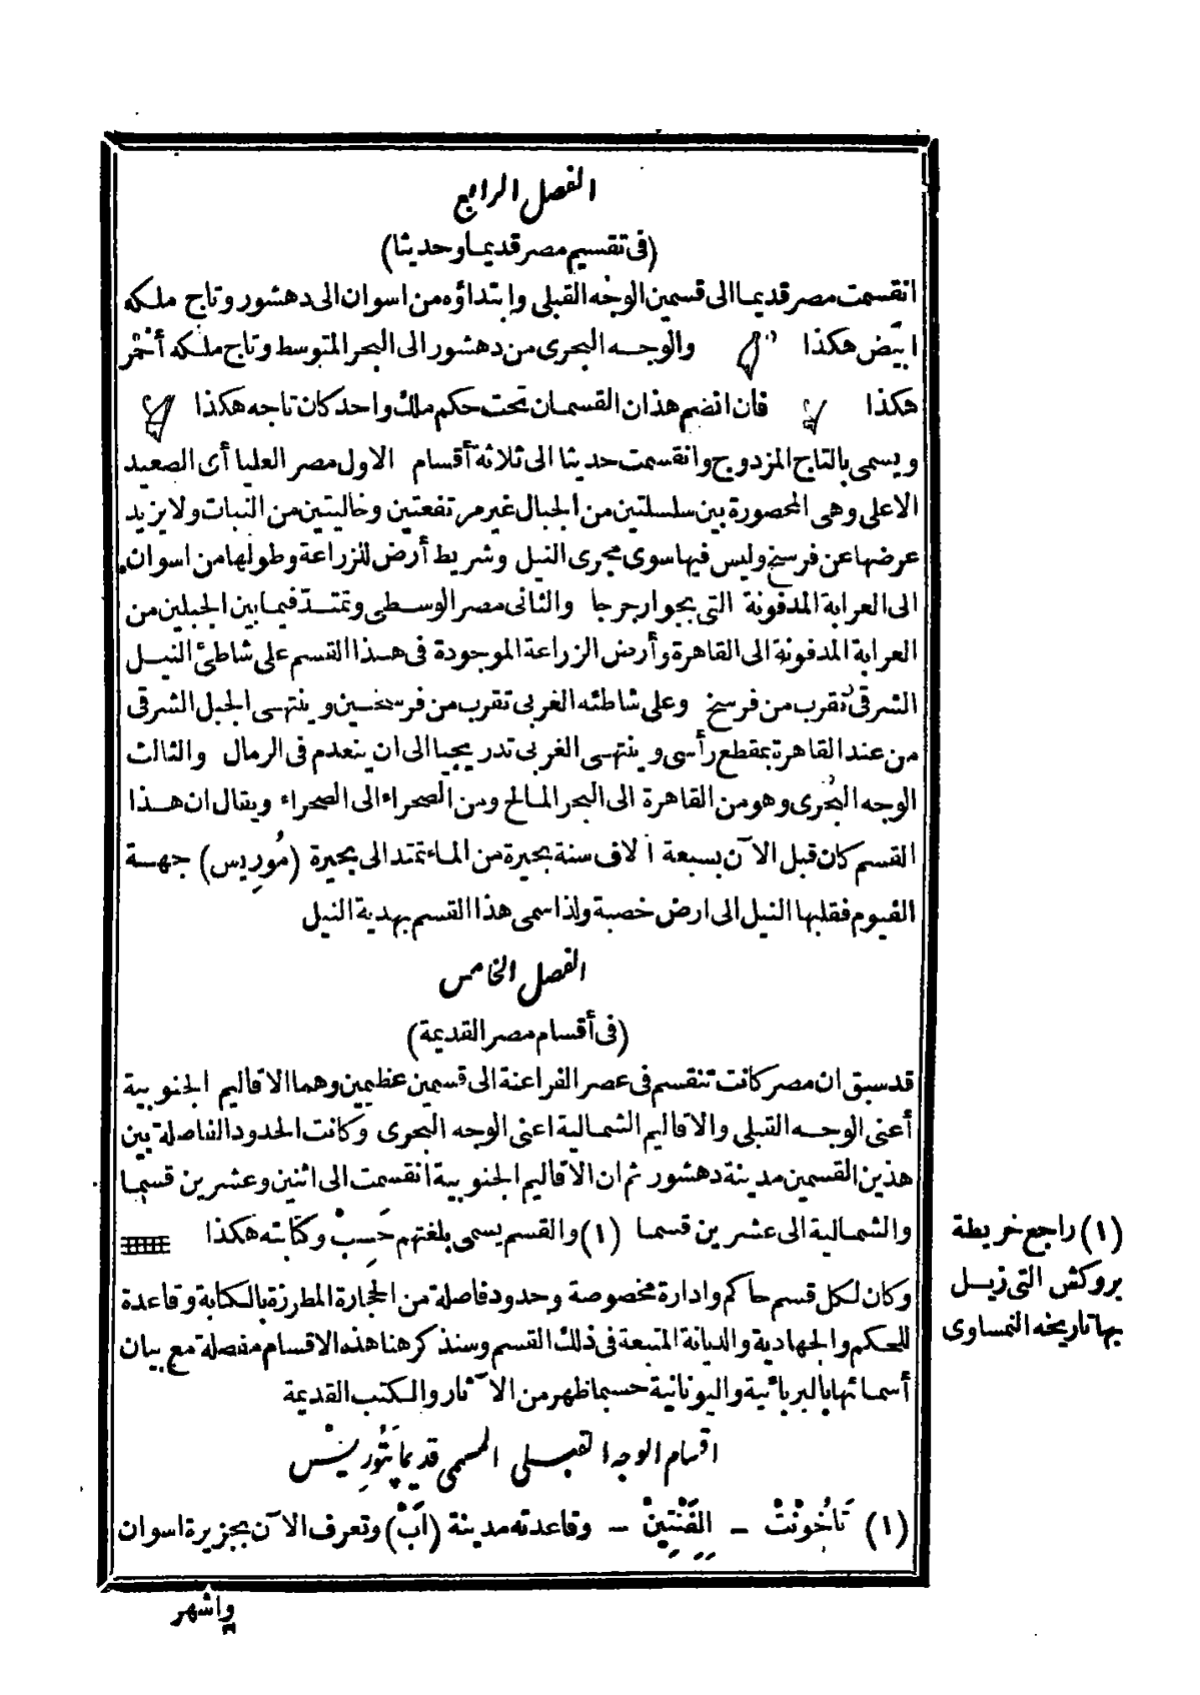 الفصل الرابع
(فى تقسيم مصر قديما وحديثا)
انقسمت مصر قديما الى قسمين الوجه القبلى وابتداؤه من اسوان الى دهشور وتاج ملكه
ابيض هكذا والوجه البحرى من دهشور الى البحر المتوسط وتاج ملكه أحمر
هكذا فان انضم هذان القسمان تحت حكم ملك واحد كان تاجه هكذا
ويسمى بالتاج المزدوج وانقسمت حديثا الى ثلاثة أقسام الاول مصر العليا أى الصعيد
الاعلى وهى المحصورة بين سلسلتين من الجبال غير مرتفعتين وخاليتين من النبات ولا يزيد
عرضها عن فرسخ وليس فيها سوى مجرى النيل وشريط أرض للزراعة وطولها من اسوان
الى العرابة المدفونة التى بجوار جرجا والثانى مصر الوسطى وتمتد فيما بين الجبلين من
العرابة المدفونة الى القاهرة وأرض الزراعة الموجودة فى هذا القسم على شاطئ النيل
الشرقى تقرب من فرسخ وعلى شاطئه الغربى تقرب من فرسخين وينتهى الجبل الشرقى
من عند القاهرة بمقطع رأسى وينتهى الغربى تدريجيا الى ان ينعدم فى الرمال والثالث
الوجه البحرى وهو من القاهرة الى البحر المالح ومن الصحراء الى الصحراء ويقال ان هذا
القسم كان قبل الآن بسبعة آلاف سنة بحيرة من الماء تمتد الى بحيرة (مُورِيس) جهة
الفيوم فقلبها النيل الى ارض خصبة ولذا سمى هذا القسم بهدية النيل
الفصل الخامس
(فى أقسام مصر القديمة)
قد سبق ان مصر كانت تنقسم فى عصر الفراعنة الى قسمين عظيمين وهما الاقاليم الجنوبية
أعنى الوجه القبلى والاقاليم الشمالية اعنى الوجه البحرى وكانت الحدود الفاصلة بين
هذين القسمين مدينة دهشور ثم ان الاقاليم الجنوبية انقسمت الى اثنين وعشرين قسما
والشمالية الى عشرين قسما (١) والقسم يسمى بلغتهم حَسِبْ وكتابته هكذا
وكان لكل قسم حاكم وادارة مخصوصة وحدود فاصلة من الحجارة المطرزة بالكتابة وقاعدة
للحكم والجهادية والديانة المتبعة فى ذلك القسم وسنذكر هنا هذه الاقسام مفصلة مع بيان
أسمائها بالبربائية واليونانية حسبما ظهر من الآثار والكتب القديمة
اقسام الوجه القبلى المسمى قديما پَتُورِيسْ
(١) تَاخُونْتْ - اِلِفَنْتِينْ - وقاعدته مدينة (اَبْ) وتعرف الآن بجزيرة اسوان
واشهر
(١) راجع خريطة
بروكش التى زيل
بها تاريخه النمساوى